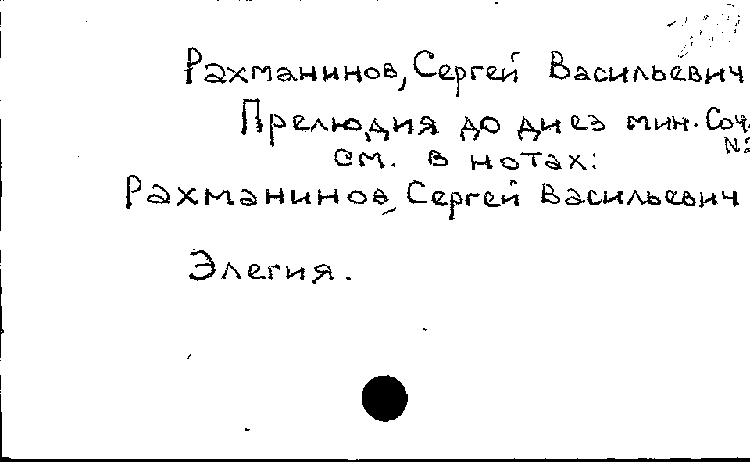 Рахманинов, Сергей Васильевич
Прелюдия до диез мин. Соч.
см. в нотах:
Рахманинов, Сергей Васильевич
Элегия.